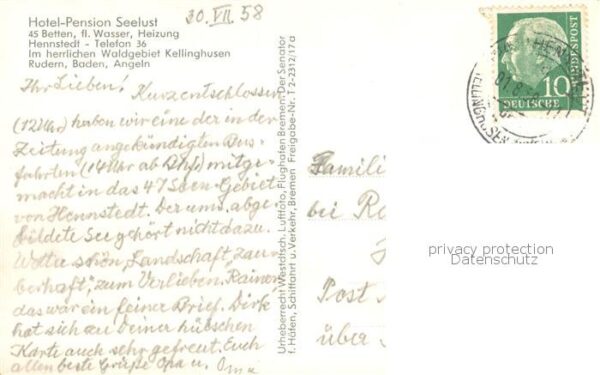 30. VII. 58
Hotel-Pension Seelust
45 Betten, fl. Wasser, Heizung
Hennstedt - Telefon 36
Im herrlichen Waldgebiet Kellinghusen
Rudern, Baden, Angeln
Ihr Lieben! Kurzentschlossen
(12 Uhr) haben wir eine der in der
Zeitung angekündigten Bus-
fahrten (14 Uhr ab Ahf) mitge-
macht in das 47 Seen-Gebiet
von Hennstedt. Der uns abge-
bildete See gehört nicht dazu.
Wetter schön, Landschaft "zau-
berhaft", zum Verlieben. Rainer,
das war ein feiner Brief. Dirk
hat sich zu Deiner hübschen
Karte auch sehr gefreut. Euch
allen beste Grüße Opa u. Oma
Urheberrecht Westdtsch. Luftfoto, Flughafen Bremen. Der Senator
f. Häfen, Schiffahrt u. Verkehr, Bremen Freigabe-Nr. T 2-2312/17a
Famili
bei
Post
über
10
DEUTSCHE
BUNDESPOST
KELLINGHUSEN
privacy protection
Datenschutz